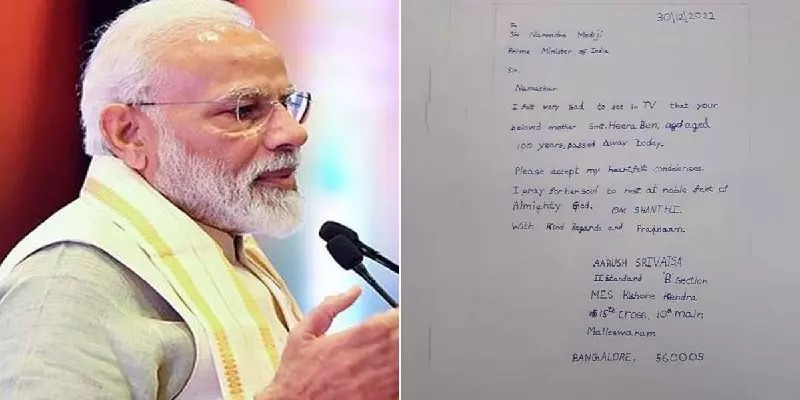 30/12/2022
To
Sri Narendra Modiji
Prime Minister of India
Sir.
Namaskar
I felt very sad to see in TV that your
beloved mother Smt. Heera Ben, aged
100 years, passed away today.
Please accept my heartfelt condolences.
I pray for her soul to rest at noble feet of
Almighty God. OM SHANTHI.
With Kind Regards and Pranaam.
AARUSH SRIVATSA
II Standard 'B' Section
MES Kishore Kendra
15th Cross, 10th main
Malleswaram
BANGALORE, 560003